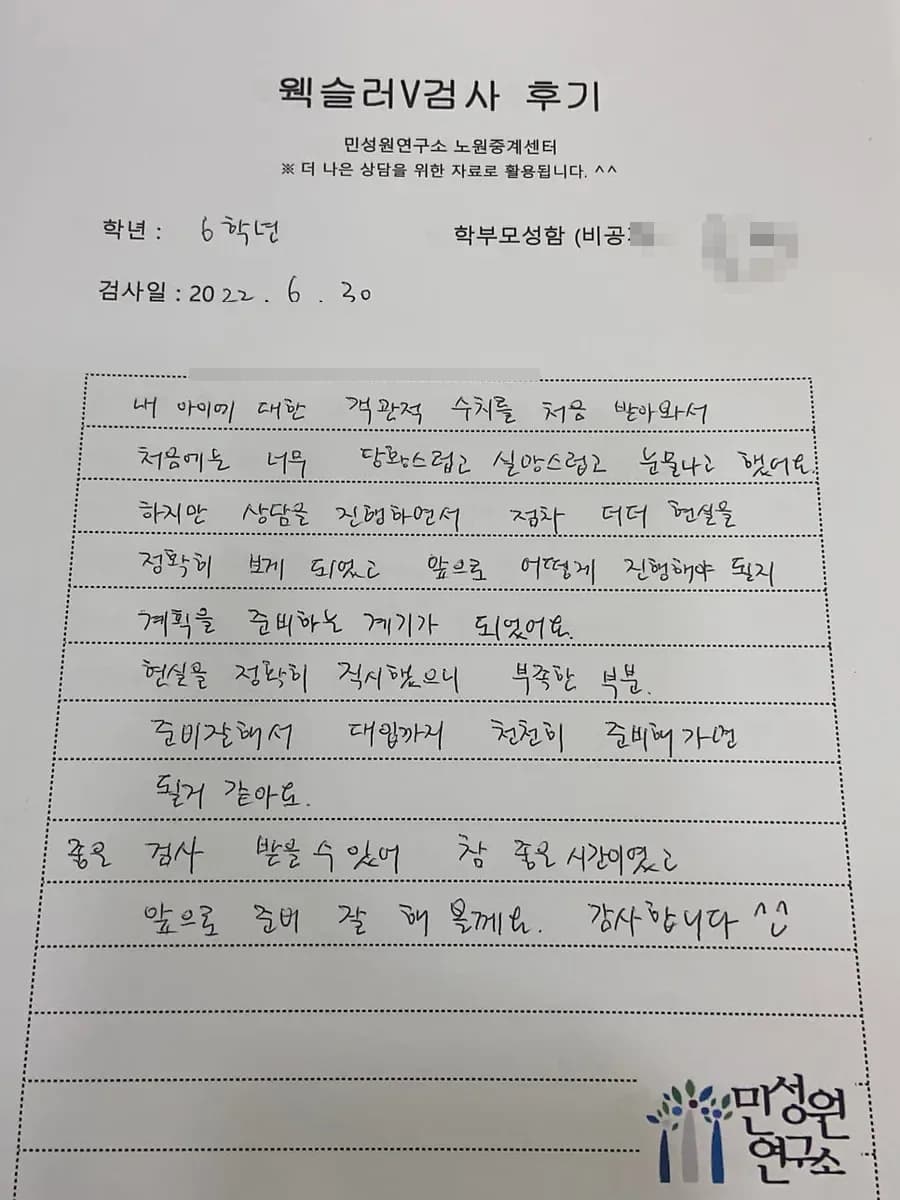 웩슬러V검사 후기
민성원연구소 노원중계센터
※ 더 나은 상담을 위한 자료로 활용됩니다. ^^
학년 : 6학년 학부모성함 (비공
검사일 : 2022. 6. 30
내 아이에 대한 객관적 수치를 처음 받아와서
처음에는 너무 당황스럽고 실망스럽고 눈물나고 했어요.
하지만 상담을 진행하면서 점차 더더 현실을
정확히 보게 되었고 앞으로 어떻게 진행해야 될지
계획을 준비하는 계기가 되었어요.
현실을 정확히 직시했으니 부족한 부분.
준비잘해서 대입까지 천천히 준비해 가면
될거 같아요.
좋은 검사 받을 수 있어 참 좋은 시간이였고
앞으로 준비 잘 해 볼께요. 감사합니다 ^^
민성원
연구소